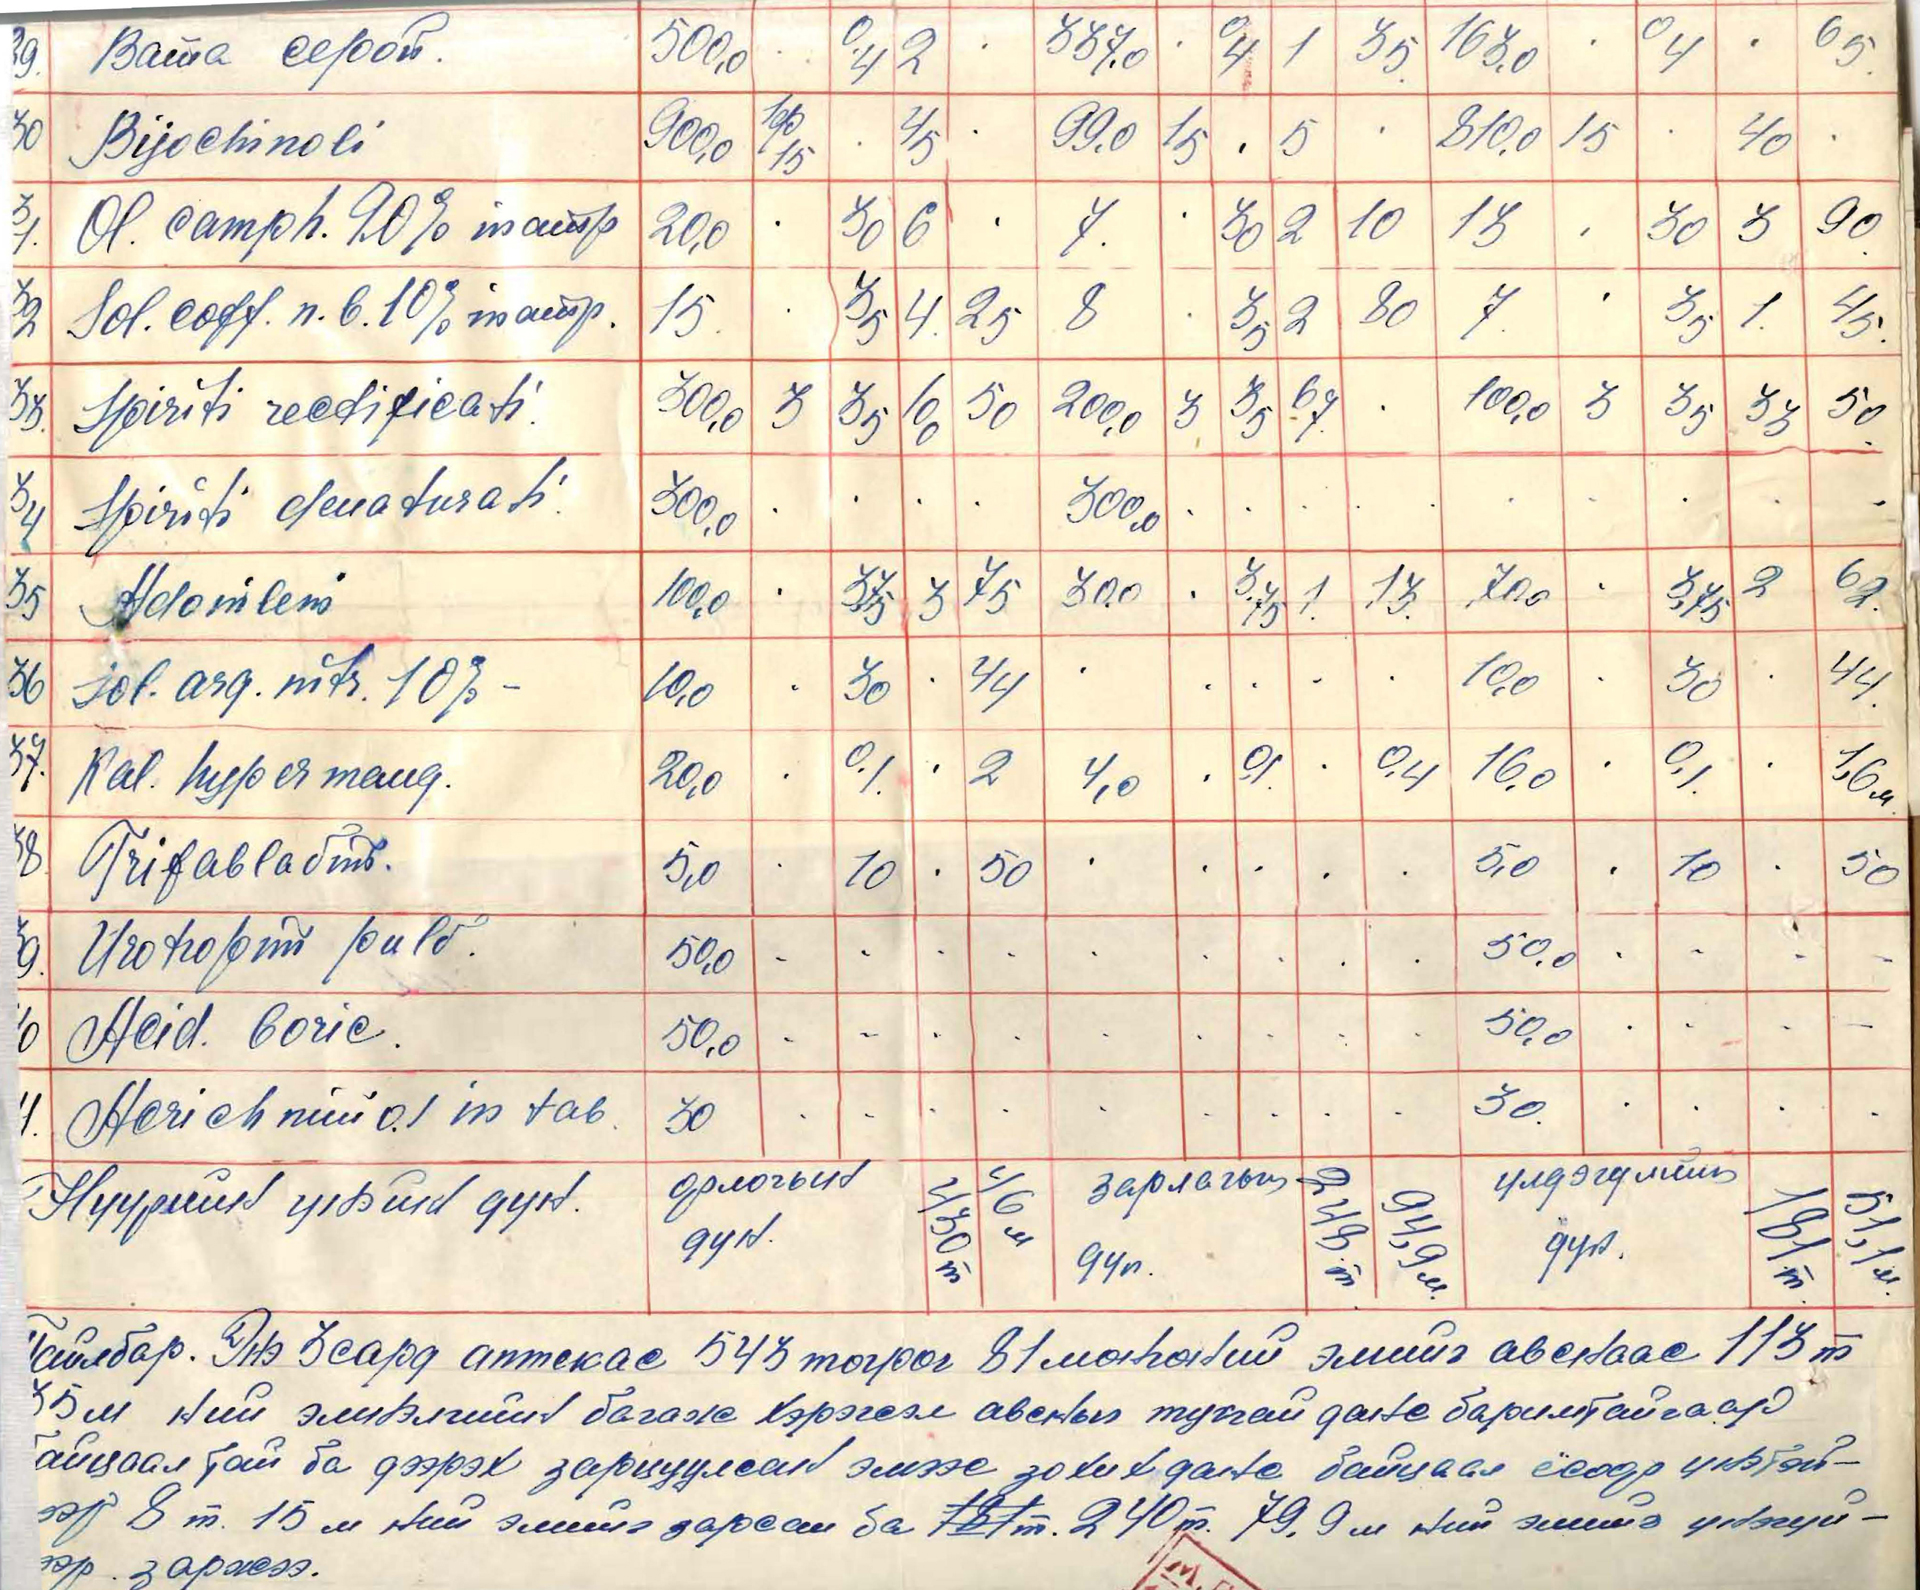 29. Вата серой. 500,0 · 0,4 2 · 337,0 · 0,4 1 35 163,0 · 0,4 · 65.
30 Bijochinoli 900,0 100/15 · 45 · 99,0 15 · 5 · 810,0 15 · 40 ·
31. Ol. camph. 20% in amp 20,0 · 30 6 · 7. · 30 2 10 13 · 30 3 90
32 Sol. coff. n. b. 10% in amp. 15. · 35 4. 25 8 · 35 2 80 7. · 35 1. 45.
33. Spiriti rectificati. 300,0 3 35 10,0 50 200,0 3 35 67. · 100,0 3 35 33 50
34 Spiriti denaturati. 300,0 · · · · 300,0 · · · · · · · · ·
35 Adonileni 100,0 · 3,75 3 75 30,0 · 3,75 1. 13. 70,0 · 3,75 2 62.
36 Sol. arg. nitr. 10% - 10,0 · 30 · 44 · · · · · 10,0 · 30 · 44.
37. Kal. hypermang. 20,0 · 0,1. · 2 4,0 · 0,1. · 0,4 16,0 · 0,1. · 1,6 м
38 5,0 · 10 · 50 · · · · · 5,0 · 10 · 50
39. Urotropini pulv. 50,0 - · · · · · · · · 50,0 · - - -
40 Acid. boric. 50,0 - - · · · · · · · 50,0 · - - -
41. Acrichnini 0.1 in tab. 30 · - · · · · · · · 30. · · · ·
Нуурийн үнэийн дүн. орлогын дүн. 430 т 46 м зарлагын дүн. 248 т 94,9 м. үлдэгдлийн дүн. 181 т. 51,1 м.
Тайлбар. Энэ 3 сард аптекас 543 төгрөг 81 мөнгөний эмийг авснаас 113 т
35 м ний эмнэлгийн багаж хэрэгсэл авсны тухай данс баримтайгаар
байцаалтай ба дээрэх зарцуулсан эмээс зохих данс байцаал ёсоор үнэтэй-
гэр 8 т. 15 м ний эмийг зарсан ба т. 240 т. 79,9 м ний эмийг үнэгүй-
гэр заржээ.